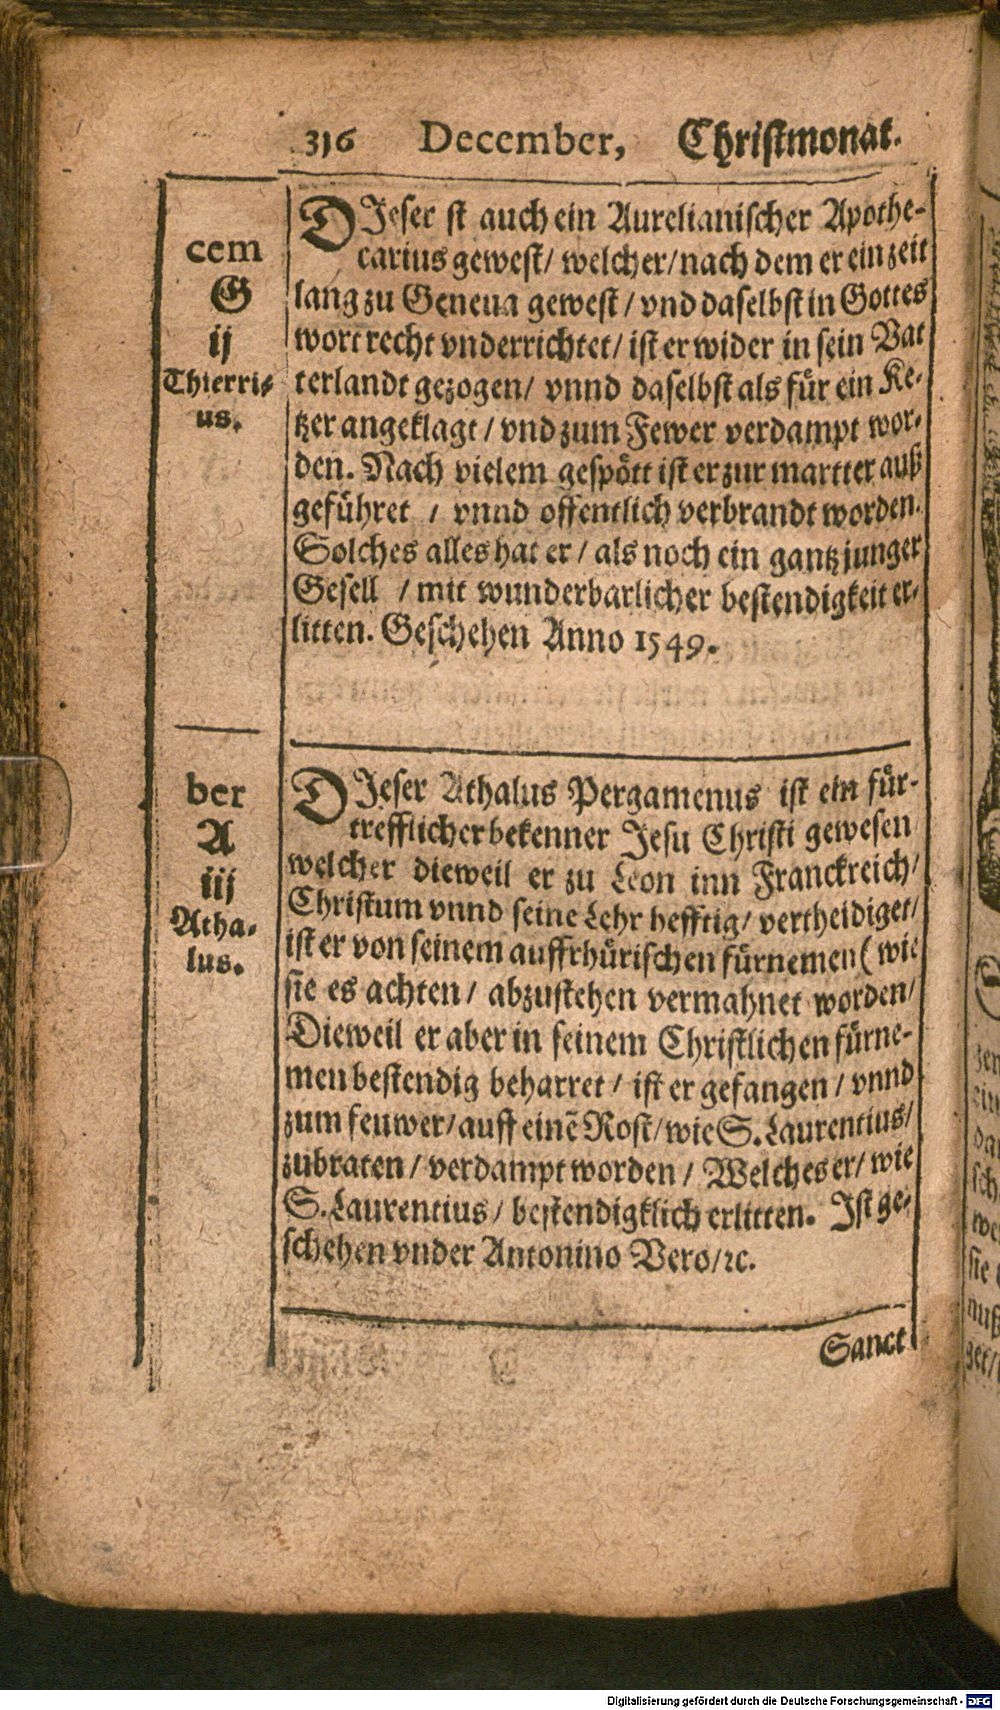 316 December, Christmonat.
cem
G
ij
Thierri-
us.
DIeser st auch ein Aurelianischer Apothe-
carius gewest/ welcher/ nach dem er ein zeit
lang zu Geneua gewest/ vnd daselbst in Gottes
wort recht vnderrichtet/ ist er wider in sein Vat
terlandt gezogen/ vnnd daselbst als für ein Ke-
tzer angeklagt/ vnd zum Fewer verdampt wor-
den. Nach vielem gespött ist er zur martter auß
geführet / vnnd offentlich verbrandt worden.
Solches alles hat er/ als noch ein gantz junger
Gesell / mit wunderbarlicher bestendigkeit er-
litten. Geschehen Anno 1549.
ber
A
iij
Atha-
lus.
DIeser Athalus Pergamenus ist ein für-
trefflicher bekenner Jesu Christi gewesen
welcher dieweil er zu Leon inn Franckreich/
Christum vnnd seine Lehr hefftig/ vertheidiget/
ist er von seinem auffrhürischen fürnemen (wie
sie es achten/ abzustehen vermahnet worden/
Dieweil er aber in seinem Christlichen fürne-
men bestendig beharret/ ist er gefangen/ vnnd
zum feuwer/ auff einẽ Rost/ wie S. Laurentius/
zubraten/ verdampt worden/ Welches er/ wie
S. Laurentius/ bestendigklich erlitten. Ist ge-
schehen vnder Antonino Vero/ ꝛc.
Sanct
Digitalisierung gefördert durch die Deutsche Forschungsgemeinschaft - DFG